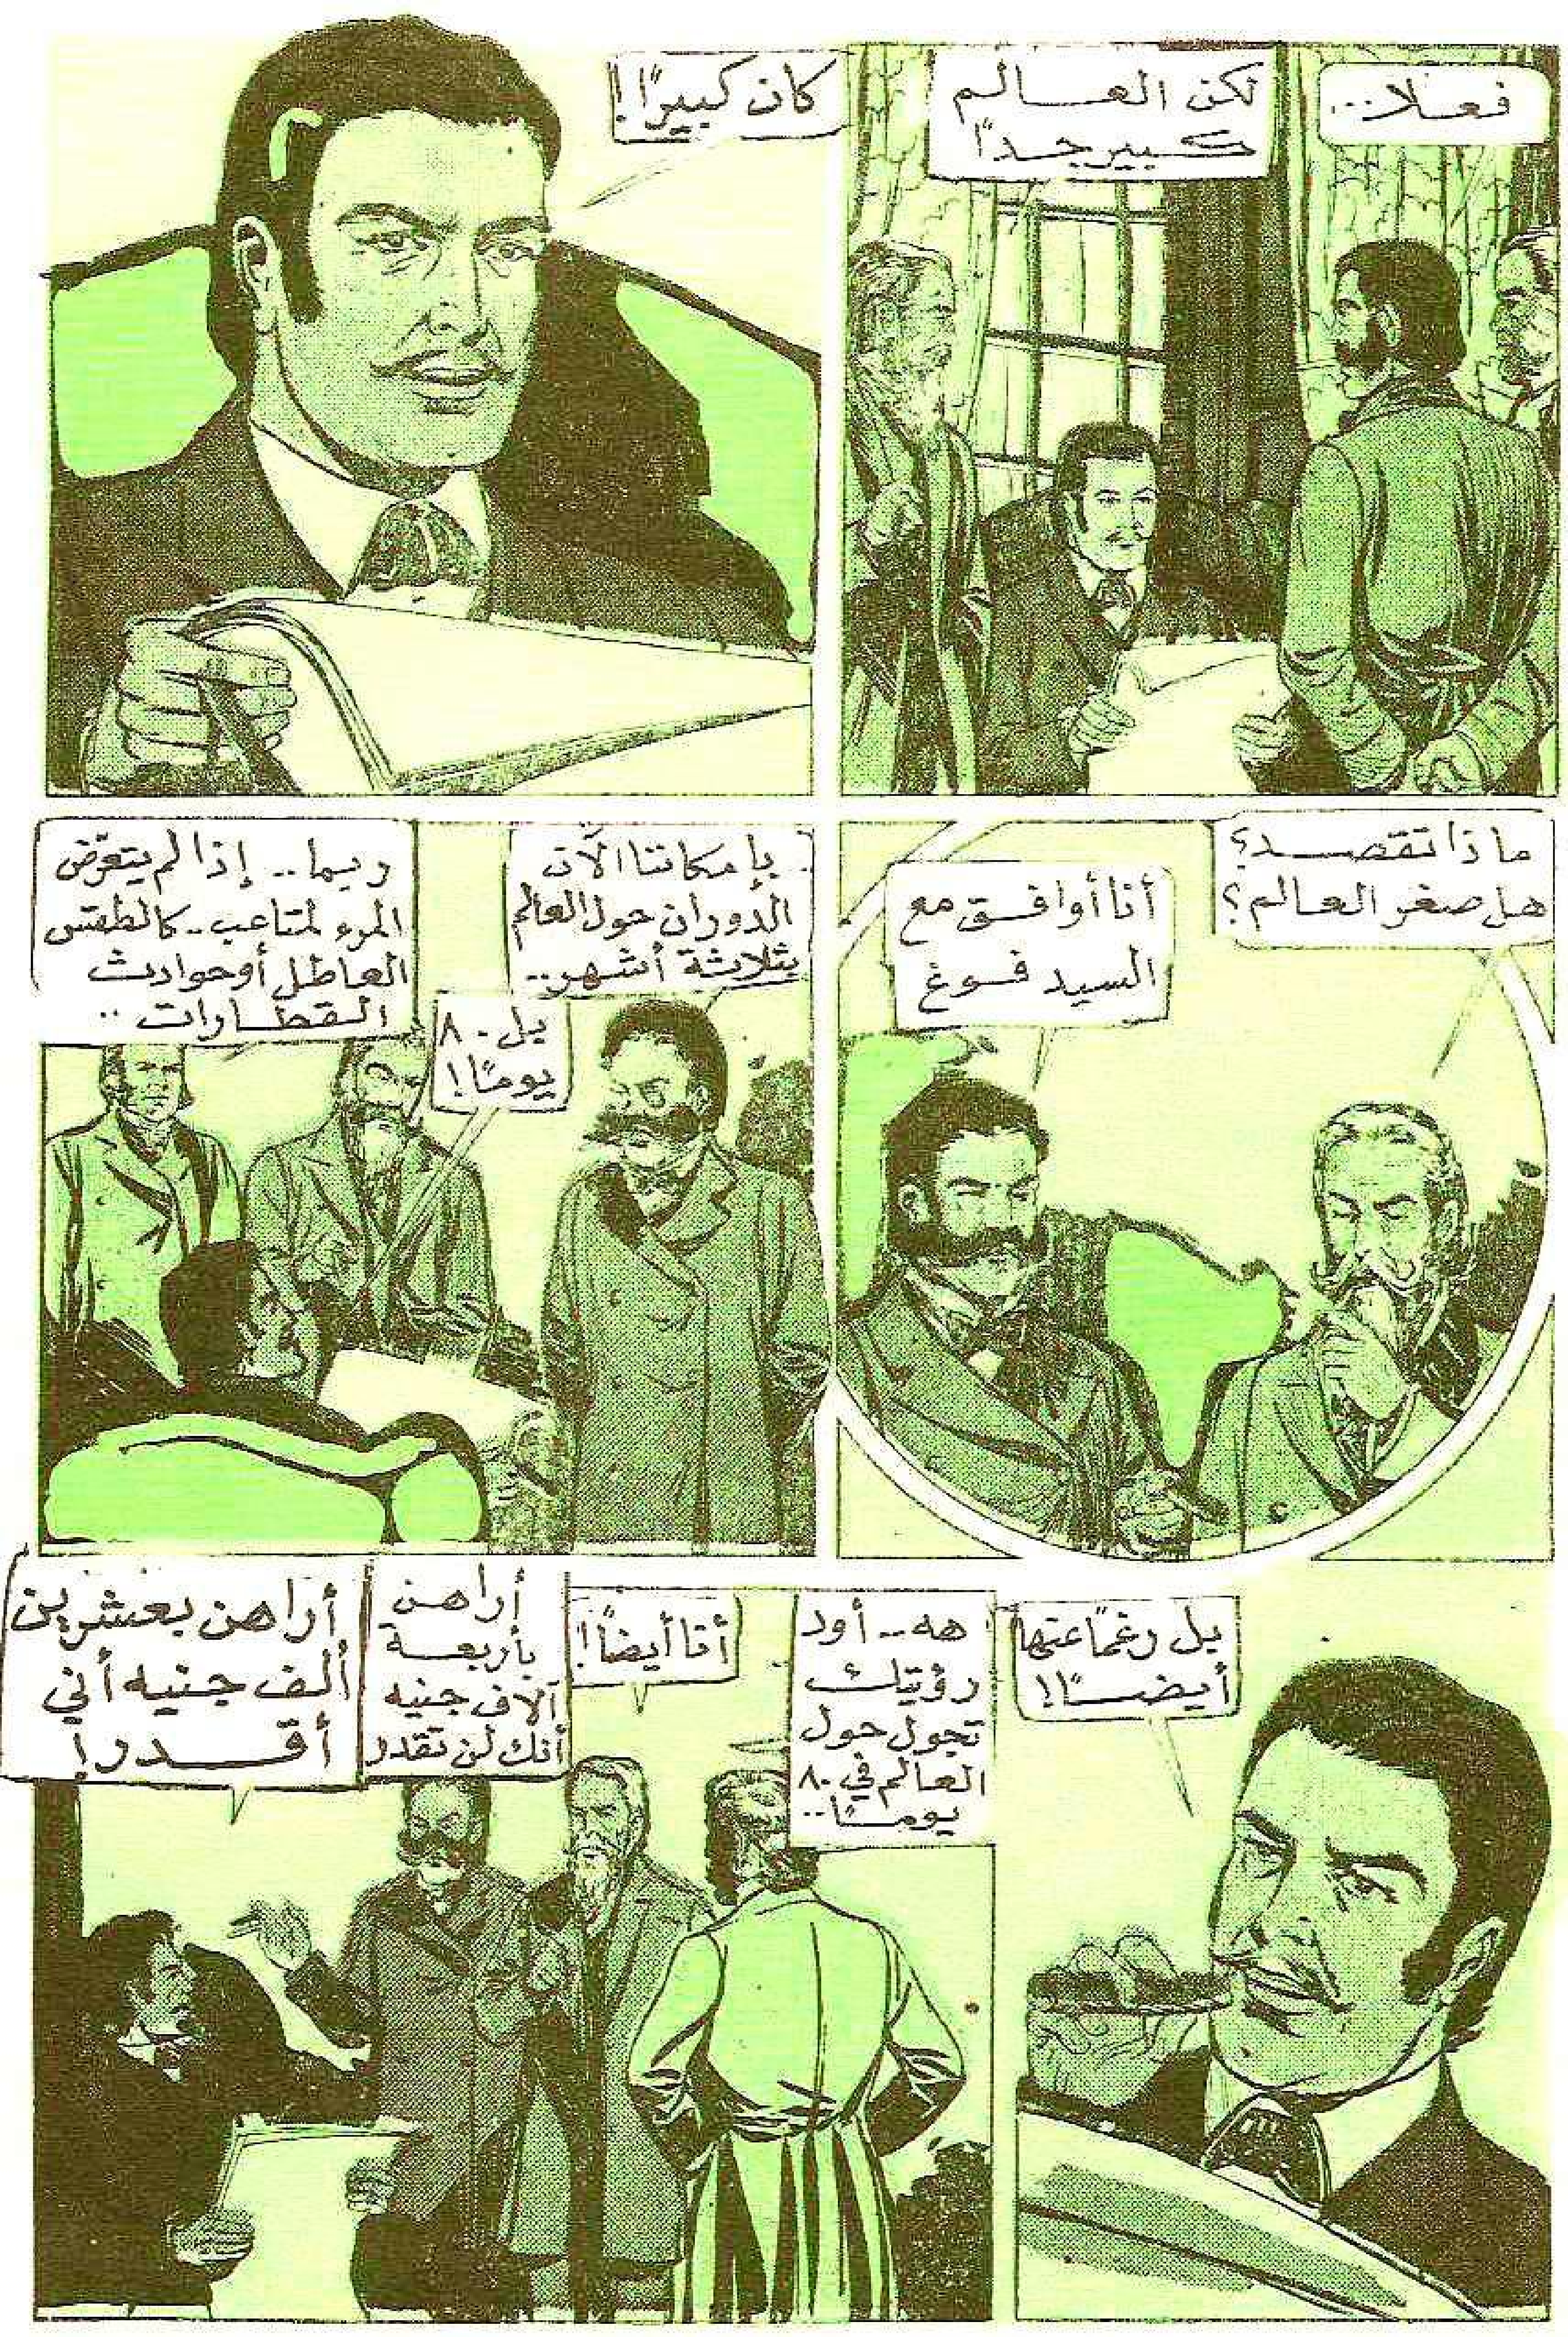 فعلا...
لكن العالم
كبير جداً
كان كبيراً!
ماذا تقصد؟
هل صغر العالم؟
أنا أوافق مع
السيد فوغ
بإمكاننا الآن
الدوران حول العالم
بثلاثة أشهر..
بل ٨٠
يومًا!
ربما.. إذا لم يتعرّض
المرء لمتاعب.. كالطقس
العاطل أو حوادث
القطارات..
بل رغمًا عنها
أيضًا!
هه.. أود
رؤيتك
تجول حول
العالم في ٨٠
يومًا..
أنا أيضاً!
أراهن
بأربعة
آلاف جنيه
أنك لن تقدر
أراهن بعشرين
ألف جنيه أني
أقدر!